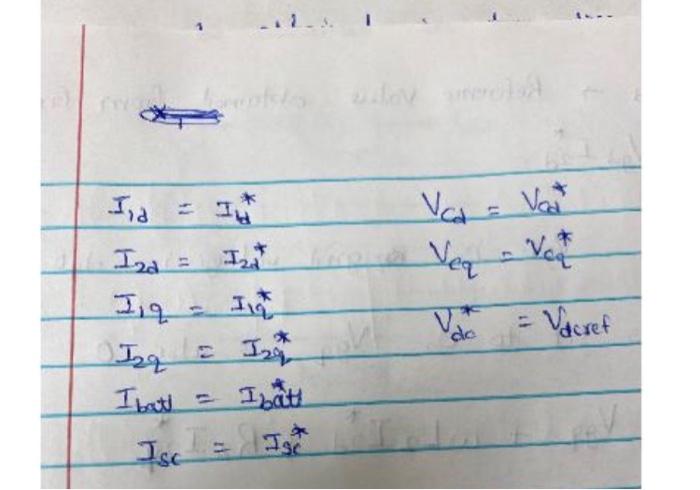 I1d = I1d*
I2d = I2d*
I1q = I1q*
I2q = I2q*
Ibatt = Ibatt*
Isc = Isc*
Vcd = Vcd*
Vcq = Vcq*
Vdc* = Vdcref